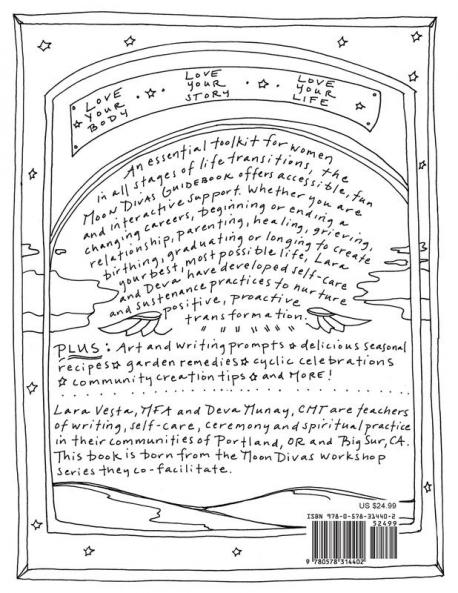 LOVE YOUR BODY
LOVE YOUR STORY
LOVE YOUR LIFE
An essential toolkit for women
in all stages of life transitions, the
MOON DIVAS GUIDEBOOK offers accessible, fun
and interactive support. Whether you are
changing careers, beginning or ending a
relationship, parenting, healing, grieving,
birthing, graduating or longing to create
your best, most possible life, Lara
and Deva have developed self-care
and sustenance practices to nurture
positive, proactive
transformation.
PLUS: Art and writing prompts ☆ delicious seasonal
recipes ☆ garden remedies ☆ cyclic celebrations
☆ community creation tips ☆ and MORE!
Lara Vesta, MFA and Deva Munay, CMT are teachers
of writing, self-care, ceremony and spiritual practice
in their communities of Portland, OR and Big Sur, CA.
This book is born from the Moon Divas workshop
series they co-facilitate.
US $24.99
ISBN 978-0-578-31440-2
52499
9 780578 314402